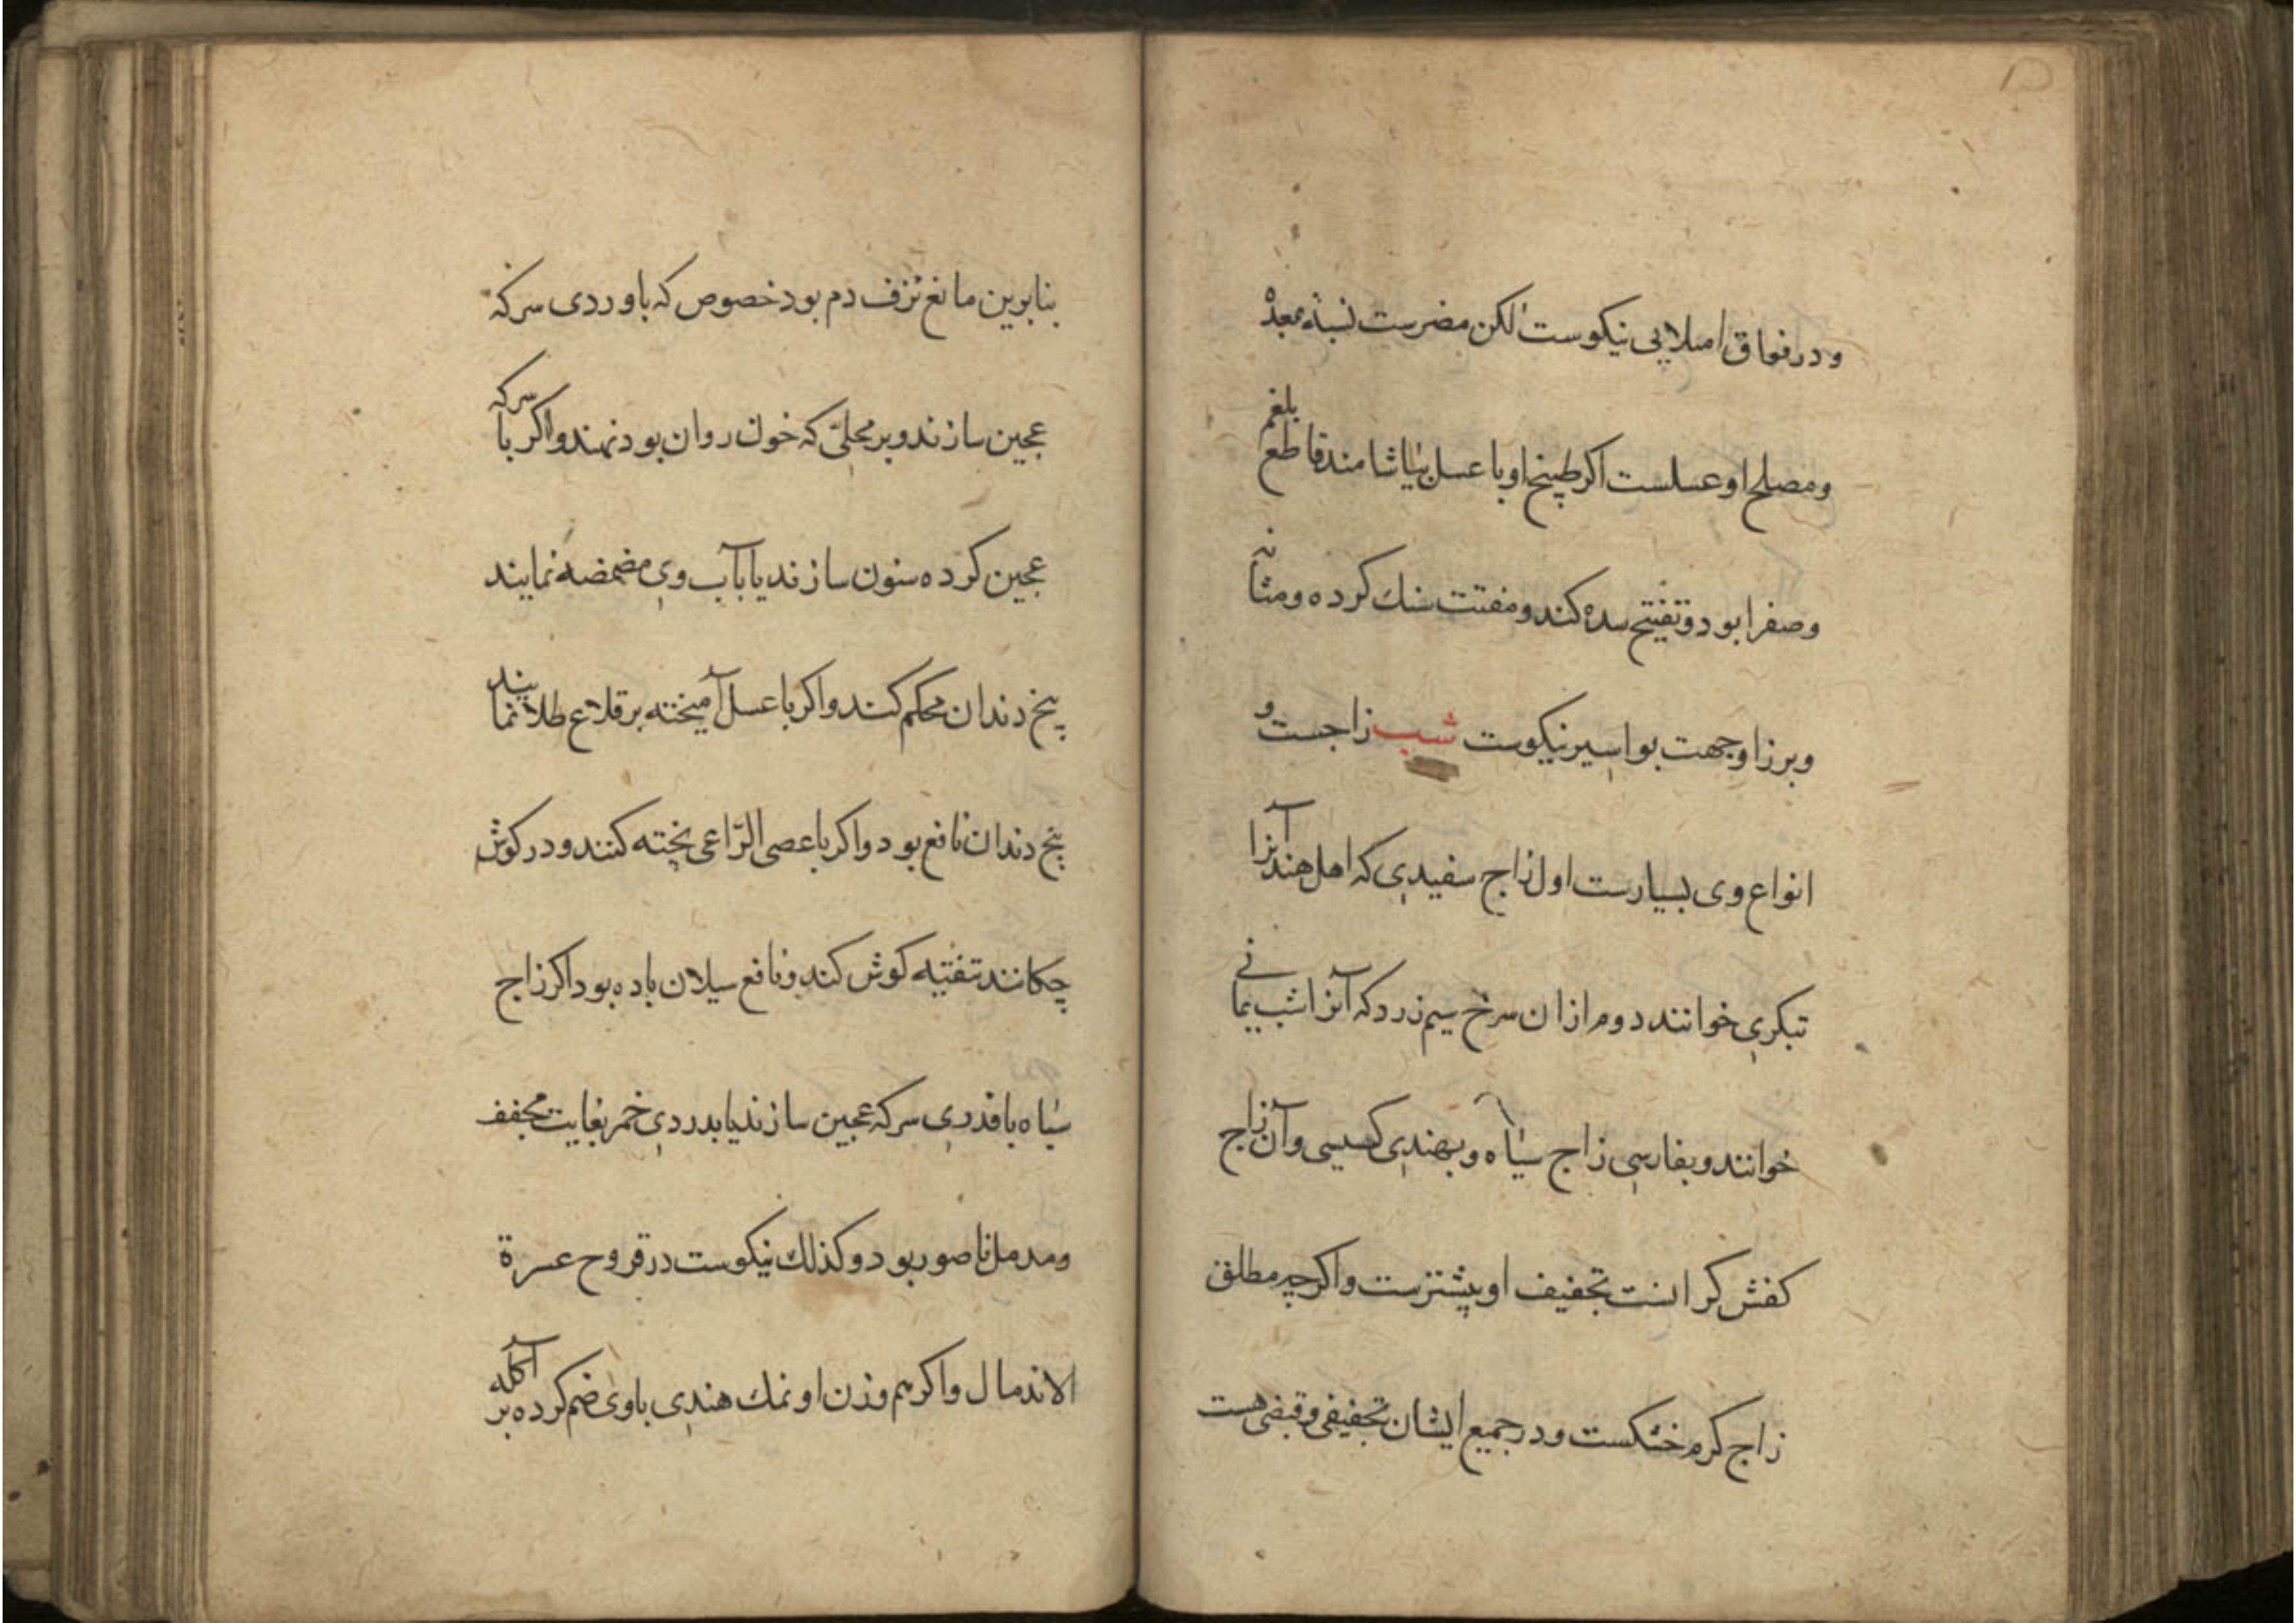 و در فواق امتلایی نیکوست لکن مضرست نسبة بمعده
و مصلح او عسلست اکر طبیخ او با عسل بیاشامند قاطع بلغم
و صفرا بود و تفتیح سده کند و مفتت سنک کرده و مثانه
و برز او جهت بواسیر نیکوست شب زاجست و
انواع وی بسیارست اول زاج سفیدی که اهل هند آنرا
تبکری خوانند دوم ازان سرخ نیم زرد که آنرا شب یمانی
خوانند و بفارسی زاج سیاه و بهندی کسیسی و آن زاج
کفش کرانست تجفیف او بیشترست و اکرچه مطلق
زاج کرم خشکست و در جمیع ایشان تجفیفی و قبضی هست
بنابرین مانع نزف دم بود خصوص که با و ردی سرکه
عجین سازند و بر محلی که خون روان بود نهند و اکر با سرکه
عجین کرده سنون سازند یا بآب وی مضمضه نمایند
بیخ دندان محکم کند و اکر با عسل آمیخته بر قلاع طلا نمایند
بیخ دندان نافع بود و اکر با عصی الرّاعی پخته کنند و در کوش
چکانند تنقیه کوش کند و نافع سیلان باده بود اکر زاج
سیاه با قدری سرکه عجین سازند یا بدردی خمر بغایت مجفف
و مدمل ناصور بود و کذلک نیکوست در قروح عسرة
الاندمال و اکر هم وزن او نمک هندی با وی ضم کرده بر آکله